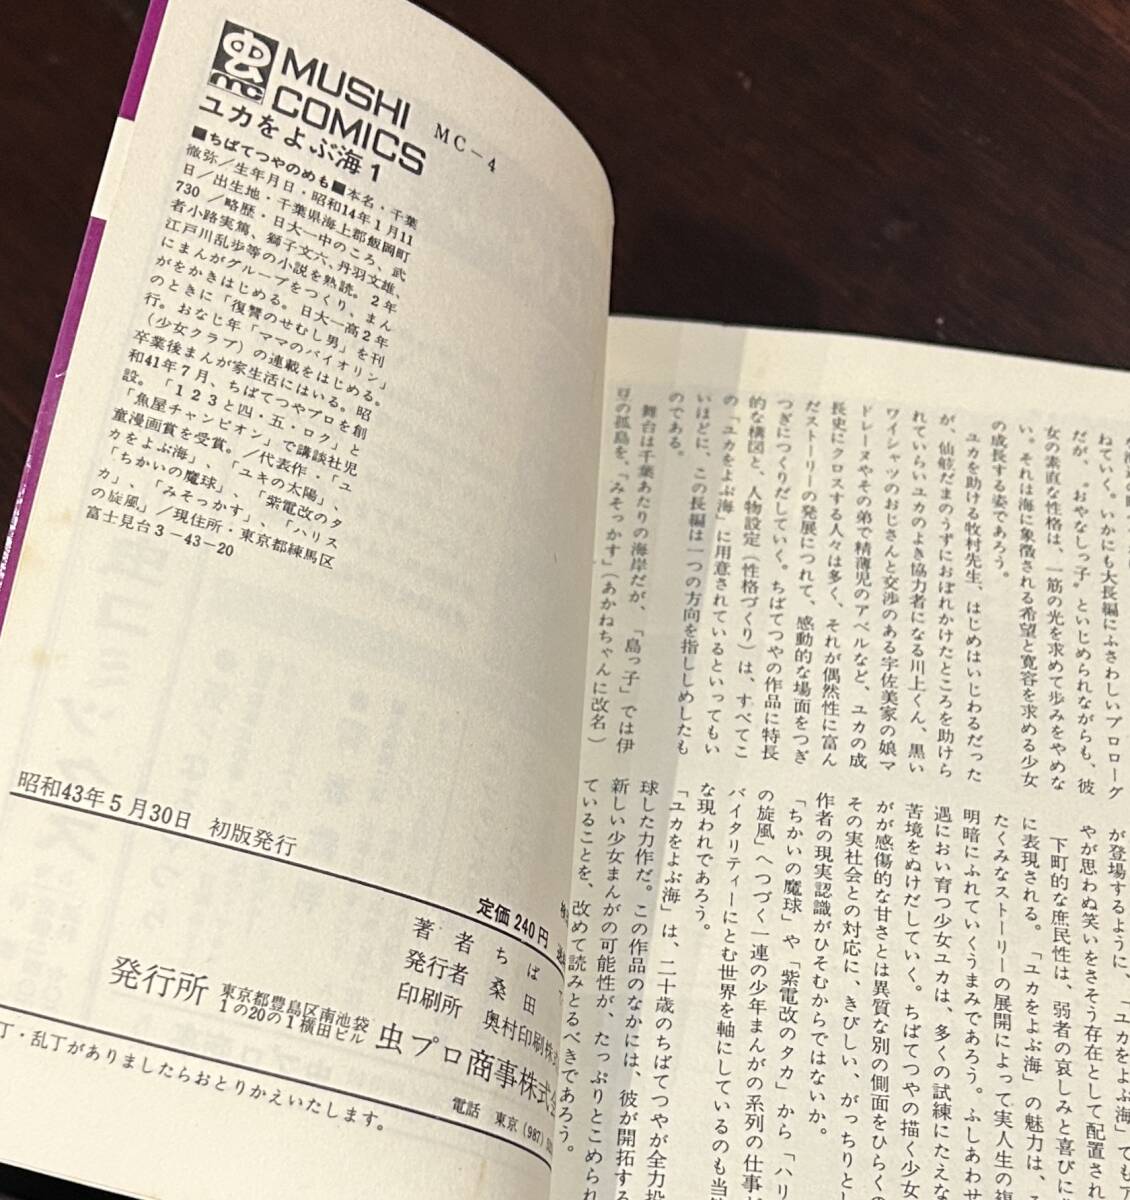 虫
mc
MUSHI
COMICS
MC-4
ユカをよぶ海1
■ちばてつやのめも■本名・千葉
徹弥/生年月日・昭和14年1月11
日/出生地・千葉県海上郡飯岡町
730/略歴・日大一中のころ、武
者小路実篤、獅子文六、丹羽文雄、
江戸川乱歩等の小説を熟読。2年
にまんがグループをつくり、まん
がをかきはじめる。日大一高2年
のときに「復讐のせむし男」を刊
行。おなじ年「ママのバイオリン」
(少女クラブ)の連載をはじめる。
卒業後まんが家生活にはいる。昭
和41年7月、ちばてつやプロを創
設。「123と四・五・ロク」と
「魚屋チャンピオン」で講談社児
童漫画賞を受賞。/代表作・「ユ
カをよぶ海」、「ユキの太陽」、
「ちかいの魔球」、「紫電改のタ
カ」、「みそっかす」、「ハリス
の旋風」/現住所・東京都練馬区
富士見台3-43-20
昭和43年5月30日 初版発行
定価240円
著者 ちば
発行者 桑田
印刷所 奥村印刷株式
発行所 東京都豊島区南池袋
1の20の1横田ビル
虫プロ商事株式会
電話 東京(987)
丁・乱丁がありましたらおとりかえいたします。
ねていく。いかにも大長編にふさわしいプロローグ
だが、〝おやなしっ子〟といじめられながらも、彼
女の素直な性格は、一筋の光を求めて歩みをやめな
い。それは海に象徴される希望と寛容を求める少女
の成長する姿であろう。
ユカを助ける牧村先生、はじめはいじわるだった
が、仙舷だまのうずにおぼれかけたところを助けら
れていらいユカのよき協力者になる川上くん、黒い
ワイシャツのおじさんと交渉のある宇佐美家の娘マ
ドレーヌやその弟で精薄児のアベルなど、ユカの成
長史にクロスする人々は多く、それが偶然性に富ん
だストーリーの発展につれて、感動的な場面をつぎ
つぎにつくりだしていく。ちばてつやの作品に特長
的な構図と、人物設定(性格づくり)は、すべてこ
の「ユカをよぶ海」に用意されているといってもい
いほどに、この長編は一つの方向を指ししめしたも
のである。
舞台は千葉あたりの海岸だが、「島っ子」では伊
豆の孤島を、「みそっかす」(あかねちゃんに改名)
が登場するように、「ユカをよぶ海」でも
やが思わぬ笑いをさそう存在として配置され
下町的な庶民性は、弱者の哀しみと喜びに
に表現される。「ユカをよぶ海」の魅力は、
たくみなストーリーの展開によって実人生の複
明暗にふれていくうまみであろう。ふしあわせ
遇におい育つ少女ユカは、多くの試練にたえな
苦境をぬけだしていく。ちばてつやの描く少女
がが感傷的な甘さとは異質な別の側面をひらくの
その実社会との対応に、きびしい、がっちりとし
作者の現実認識がひそむからではないか。
「ちかいの魔球」や「紫電改のタカ」から「ハリ
の旋風」へつづく一連の少年まんがの系列の仕事が
バイタリティーにとむ世界を軸にしているのも当
な現われであろう。
「ユカをよぶ海」は、二十歳のちばてつやが全力投
球した力作だ。この作品のなかには、彼が開拓する
新しい少女まんがの可能性が、たっぷりとこめられ
ていることを、改めて読みとるべきであろう。